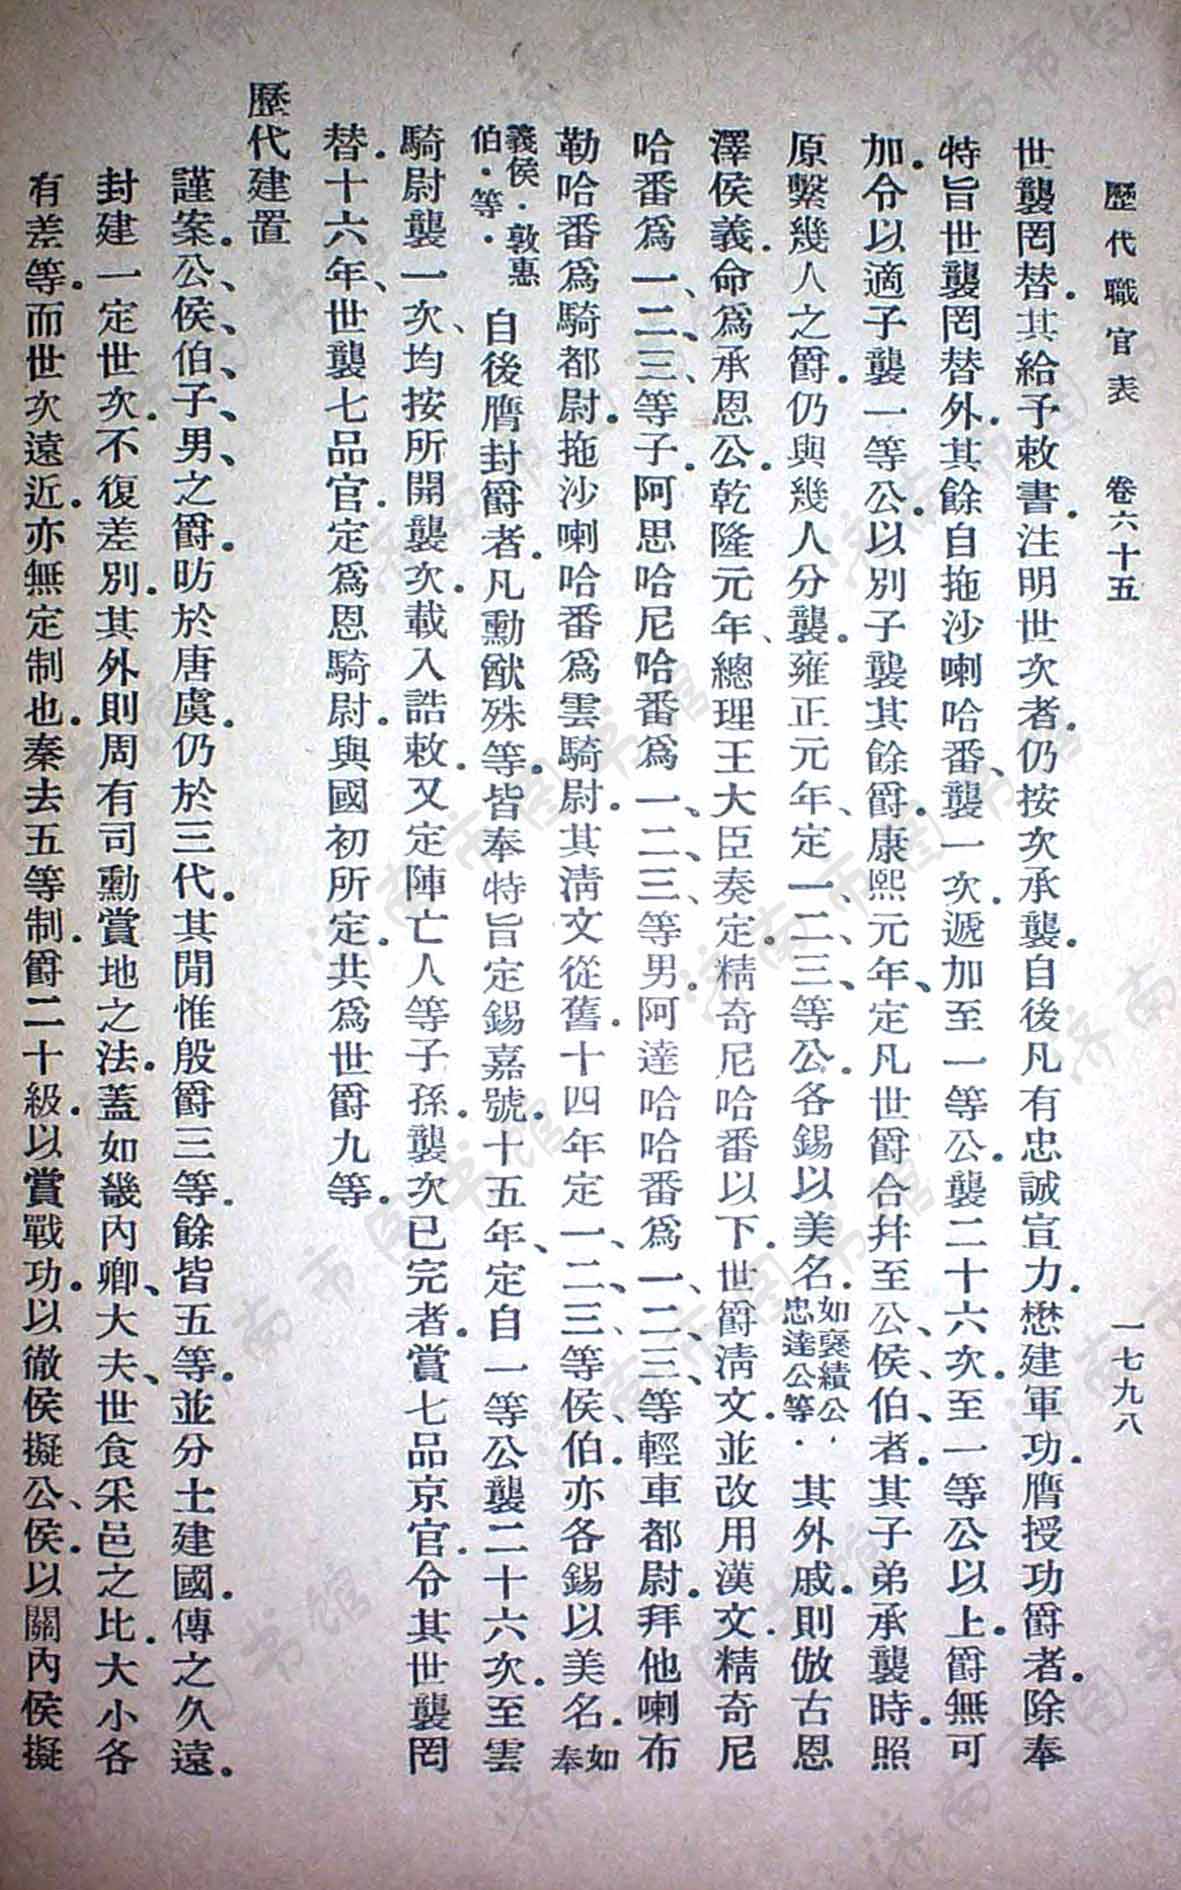 歷代職官表　卷六十五　一七九八
世襲罔替。其給予敕書。注明世次者。仍按次承襲。自後凡有忠誠宣力。懋建軍功。膺授功爵者。除奉
特旨世襲罔替外。其餘自拖沙喇哈番、襲一次。遞加至一等公。襲二十六次。至一等公以上。爵無可
加。令以適子襲一等公。以別子襲其餘爵。康熙元年、定凡世爵合幷至公、侯、伯、者。其子弟承襲時。照
原繫幾人之爵。仍與幾人分襲。雍正元年、定一、二、三、等公。各錫以美名。如襃績公忠達公等．．其外戚。則倣古恩
澤侯義。命為承恩公。乾隆元年、總理王大臣奏定。精奇尼哈番以下。世爵淸文。並改用漢文。精奇尼
哈番爲一、二、三、等子。阿思哈尼哈番爲一、二、三、等男。阿達哈哈番爲一、二、三、等輕車都尉。拜他喇布
勒哈番爲騎都尉。拖沙喇哈番爲雲騎尉。其淸文從舊。十四年定一、二、三、等侯、伯。亦各錫以美名。如奉
義侯．敦惠伯．等．自後膺封爵者。凡勳猷殊等。皆奉特旨定錫嘉號。十五年、定自一等公襲二十六次。至雲
騎尉襲一次、均按所開襲次。載入誥敕。又定陣亡人等子孫。襲次已完者。賞七品京官。令其世襲罔
替。十六年、世襲七品官。定爲恩騎尉。與國初所定。共爲世爵九等。
歷代建置
謹案。公、侯、伯、子、男、之爵。昉於唐虞。仍於三代。其閒惟殷爵三等。餘皆五等。並分土建國。傳之久遠。
封建一定世次。不復差別。其外則周有司勳賞地之法。蓋如畿內卿、大夫、世食采邑之比。大小各
有差等。而世次遠近。亦無定制也。秦去五等制。爵二十級。以賞戰功。以徹侯擬公、侯。以關內侯擬